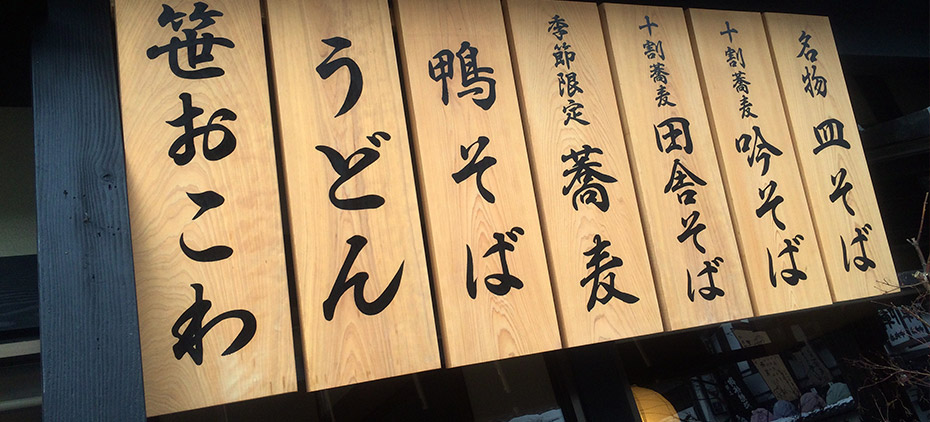 名物 皿そば
十割蕎麦 吟そば
十割蕎麦 田舎そば
季節限定 蕎麦
鴨そば
うどん
笹おこわ